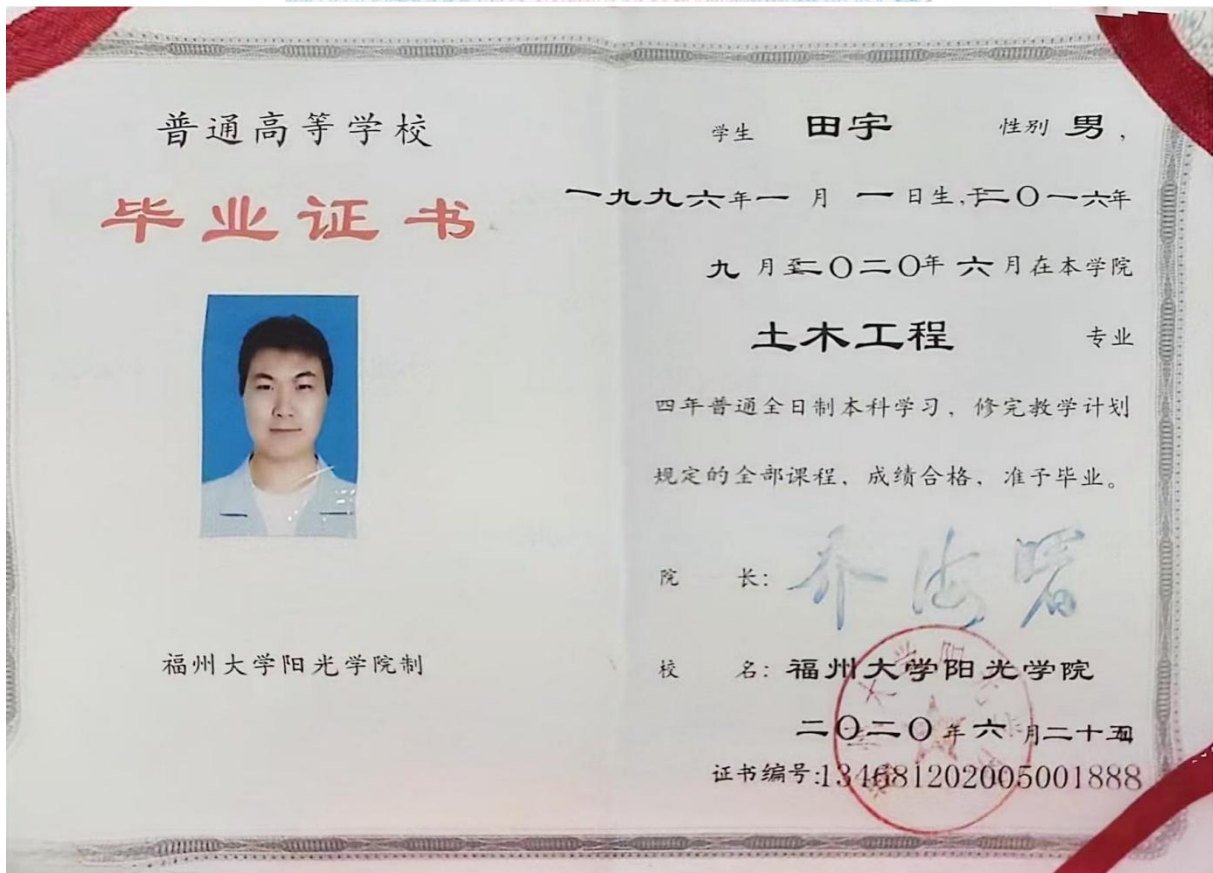 普通高等学校
毕业证书
福州大学阳光学院制
学生 田宇 性别 男,
一九九六年一月一日生,于二〇一六年
九月至二〇二〇年六月在本学院
土木工程 专业
四年普通全日制本科学习，修完教学计划
规定的全部课程，成绩合格，准予毕业。
院 长:
校 名: 福州大学阳光学院
二〇二〇年六月二十五日
证书编号:134681202005001888